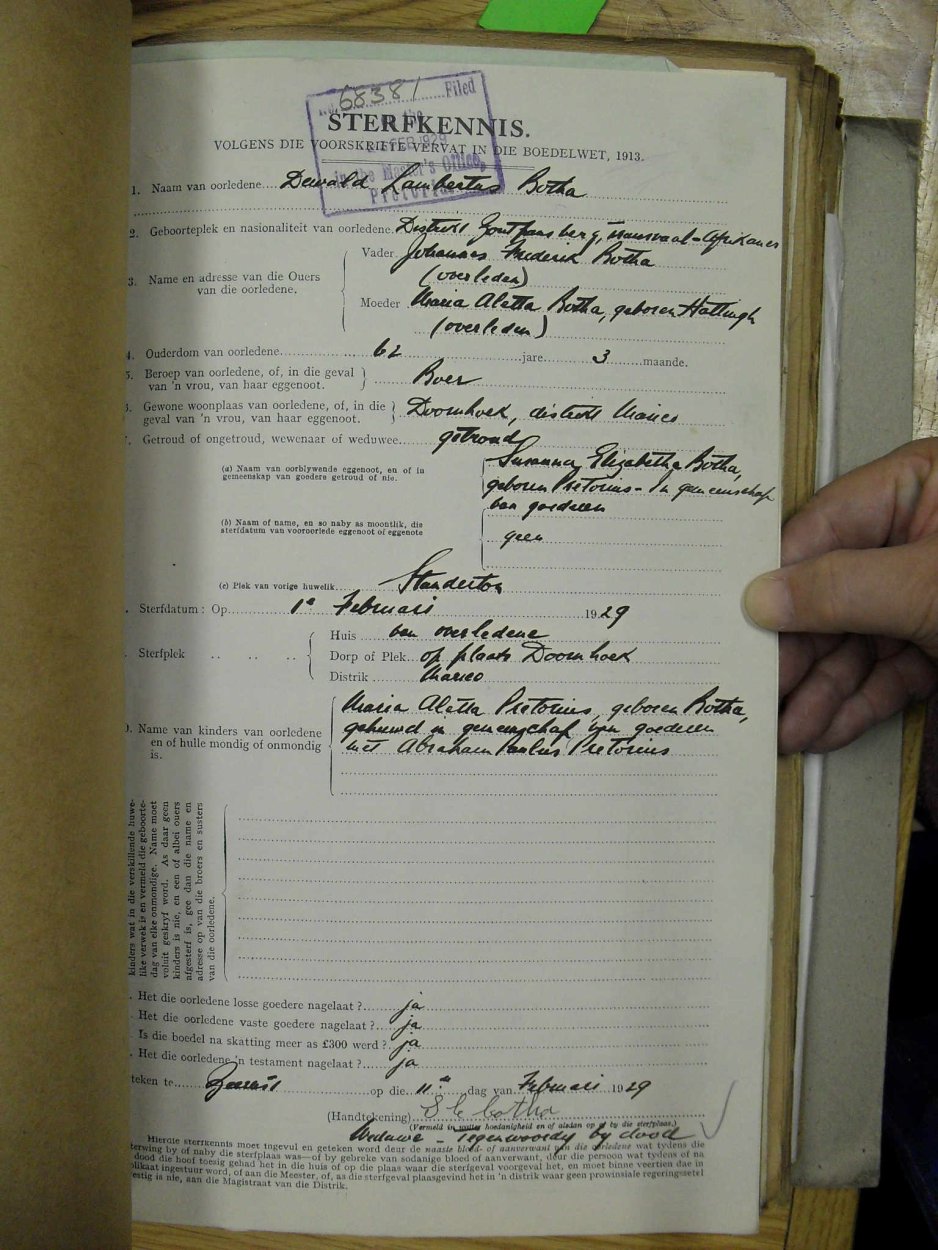 68381 Filed
FEB 1929
in the Master's Office,
Pretoria
STERFKENNIS.
VOLGENS DIE VOORSKRIFTE VERVAT IN DIE BOEDELWET, 1913.
1. Naam van oorledene.... Dewald Lambertus Botha
2. Geboorteplek en nasionaliteit van oorledene. Distrikt Zoutpansberg, Transvaal-Afrikaner
Vader Johannes Frederik Botha
(overleden)
3. Name en adresse van die Ouers
van die oorledene.
Moeder Maria Aletta Botha, geboren Hattingh
(overleden)
4. Ouderdom van oorledene 62 jare 3 maande.
5. Beroep van oorledene, of, in die geval
van 'n vrou, van haar eggenoot. Boer
6. Gewone woonplaas van oorledene, of, in die
geval van 'n vrou, van haar eggenoot. Doornhoek, distrikt Marico
7. Getroud of ongetroud, wewenaar of weduwee getroud
(a) Naam van oorblywende eggenoot, en of in
gemeenskap van goedere getroud of nie.
Susanna Elizabetha Botha,
geboren Pretorius - In gemeenschap
van goederen
(b) Naam of name, en so naby as moontlik, die
sterfdatum van vooroorlede eggenoot of eggenote
geen
(c) Plek van vorige huwelik Standerton
Sterfdatum: Op 1e Februari 1929
Huis van overledene
Sterfplek Dorp of Plek op plaats Doornhoek
Distrik Marico
Name van kinders van oorledene
en of hulle mondig of onmondig
is.
Maria Aletta Pretorius, geboren Botha,
gehuwd in gemeenschap van goederen
met Abraham Paulus Pretorius
kinders wat in die verskillende huwe-
like verwek is en vermeld die geboorte-
dag van elke onmondige. Name moet
voluit geskryf word. As daar geen
kinders is nie, en een of albei ouers
afgesterf is, gee dan die name en
adresse op van die broers en susters
van die oorledene.
Het die oorledene losse goedere nagelaat? ja
Het die oorledene vaste goedere nagelaat? ja
Is die boedel na skatting meer as £300 werd? ja
Het die oorledene 'n testament nagelaat? ja
teken te Zeerust op die 11de dag van Februari 1929
(Handtekening) S E botha
(Vermeld in watter hoedanigheid en of aldan op by die sterfplaas.)
Weduwe - Tegenwoordig by dood
Hierdie sterfkennis moet ingevul en geteken word deur de naaste bloed- of aanverwant van die oorledene wat tydens die
terwing by of naby die sterfplaas was—of by gebreke van sodanige bloed of aanverwant, deur die persoon wat tydens die
dood die hoof toesig gehad het in die huis of op die plaas waar die sterfgeval voorgeval het, en moet binne veertien dae in
plikaat ingestuur word, of aan die Meester, of, as die sterfgeval plaasgevind het in 'n distrik waar geen prowinsiale regeringssetel
vestig is nie, aan die Magistraat van die Distrik.